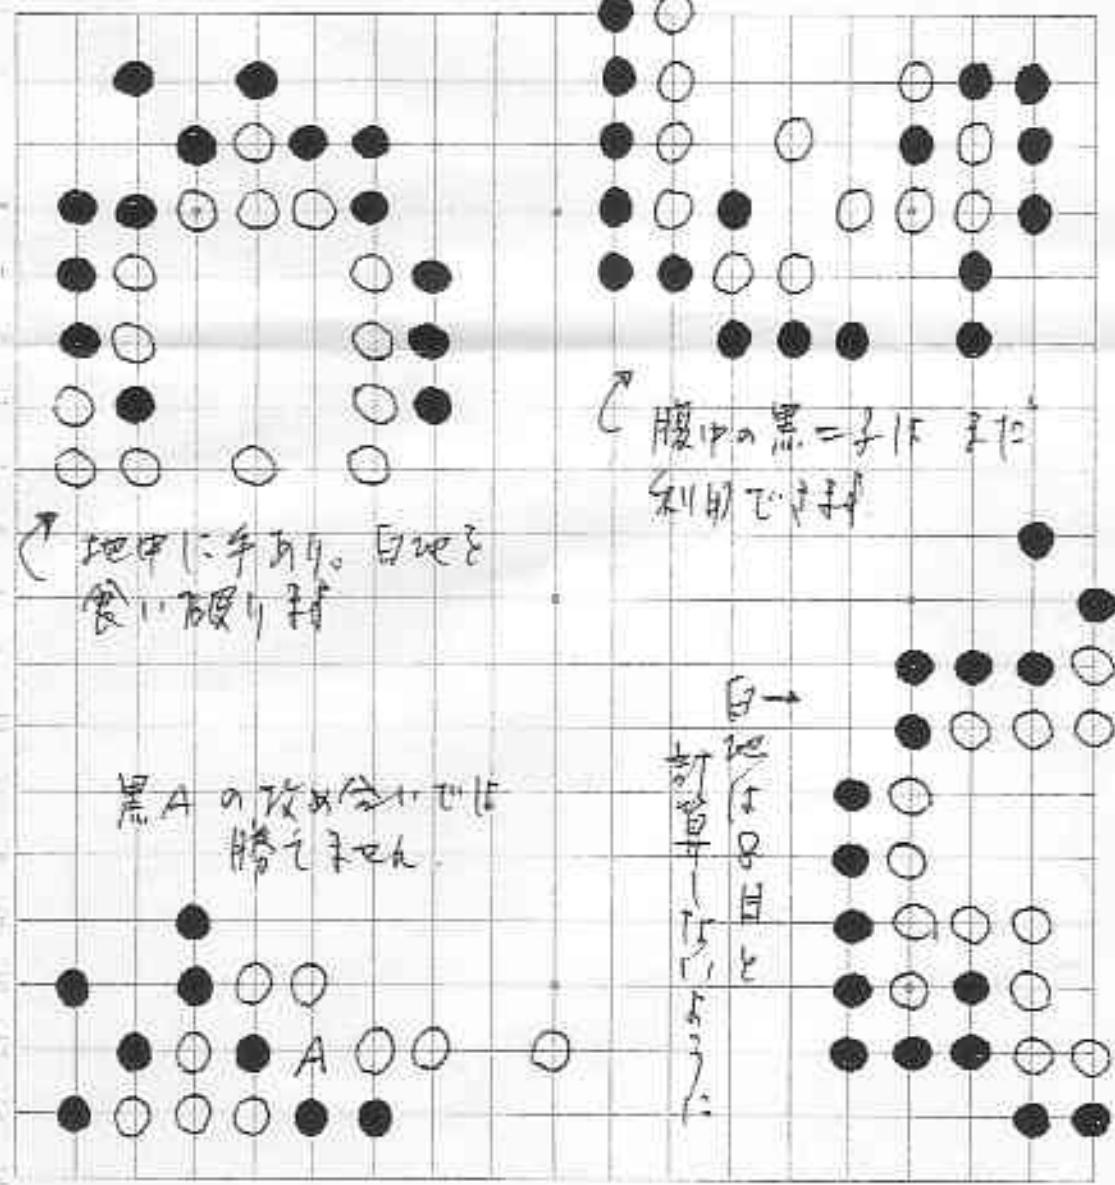 腹中の黒二子は まだ
利用できます
地中に手あり。白地を
食い破ります
黒Aの攻め合いでは
勝てません
A
白→
地は8目と
計算しないように